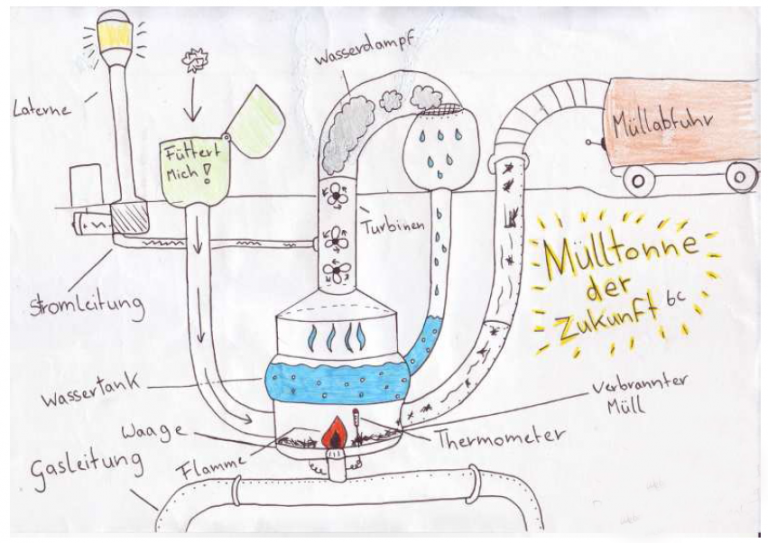 Wasserdampf
Laterne
Füttert
Mich!
Müllabfuhr
Turbinen
Mülltonne
der
Zukunft bc
Stromleitung
Wassertank
Verbrannter
Müll
Waage
Thermometer
Flamme
Gasleitung